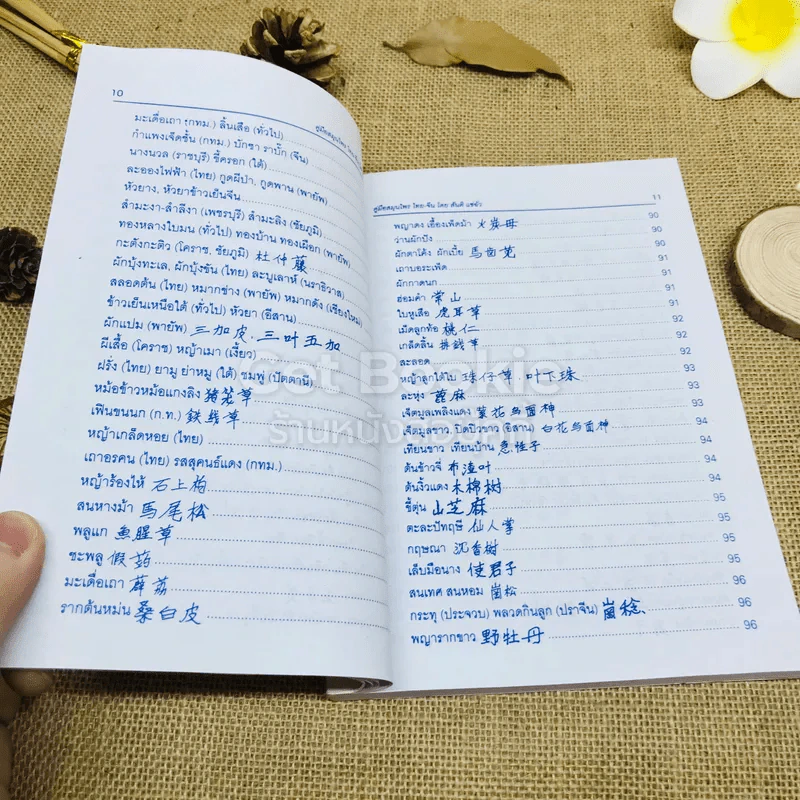 10
คู่มือสมุนไพร ไทย-จีน
มะเดื่อเถา (กทม.) ลิ้นเสือ (ทั่วไป)
กำแพงเจ็ดชั้น (กทม.) บักซา ราบิ๊ก (จีน)
นางนวล (ราชบุรี) ขี้ครอก (ใต้)
ละอองไฟฟ้า (ไทย) กูดผีป่า, กูดพาน (พายัพ)
หัวยาง, หัวยาข้าวเย็นจีน
สำมะงา-สำลีงา (เพชรบุรี) สำมะลิง (ชัยภูมิ)
ทองหลางใบมน (ทั่วไป) ทองบ้าน ทองเผือก (พายัพ)
กะตังกะติว (โคราช, ชัยภูมิ) 杜仲藤
ผักบุ้งทะเล, ผักบุ้งขัน (ไทย) ละบูเลาห์ (นราธิวาส)
สลอดต้น (ไทย) หมากช่าง (พายัพ) หมากดัง (เชียงใหม่)
ข้าวเย็นเหนือใต้ (ทั่วไป) หัวยา (อีสาน)
ผักแปม (พายัพ) 三加皮.三叶五加
ผีเสื้อ (โคราช) หญ้าเมา (เงี้ยว)
ฝรั่ง (ไทย) ยามู ย่าหมู (ใต้) ชมพู่ (ปัตตานี)
หม้อข้าวหม้อแกงลิง 猪笼草
เฟินขนนก (ก.ท.) 鉄线草
หญ้าเกล็ดหอย (ไทย)
เถาอรคน (ไทย) รสสุคนธ์แดง (กทม.)
หญ้าร้องไห้ 石上柏
สนหางม้า 馬尾松
พลูแก 魚腥草
ชะพลู 假蒟
มะเดื่อเถา 薜荔
รากต้นหม่น 桑白皮
คู่มือสมุนไพร ไทย-จีน โดย สันติ แซ่จัว 11
พญาดง เอื้องเพ็ดม้า 火炭母 90
ว่านผักปัง 90
ผักตาโค้ง ผักเบี้ย 馬齒莧 90
เถาบอระเพ็ด 91
ผักกาดนก 91
ฮ่อมคำ 常山 91
ใบหูเสือ 虎耳草 91
เม็ดลูกท้อ 桃仁 92
เกล็ดลิ้น 排銭草 92
สะลอด 92
หญ้าลูกใต้ใบ 珠仔草.叶下珠 93
ละหุ่ง 蓖麻 93
เจ็ตมูลเพลิงแดง 紫花乌面神 93
เจ็ตมูลขาว, ปิดปิวขาว (อีสาน) 白花乌面神 93
เทียนขาว เทียนบ้าน 急性子 94
ต้นข้าวจี่ 布渣叶 94
ต้นงิ้วแดง 木棉樹 94
ขี้ตุ่น 山芝麻 95
ตะละปัทฤษี 仙人掌 95
กฤษณา 沉香树 95
เล็บมือนาง 使君子 95
สนเทศ สนหอม 崗松 96
กระทุ (ประจวบ) พลวดกินลูก (ปราจีน) 崗稔 96
พญารากขาว 野牡丹 96
Get Bookie
ร้านหนังสือ